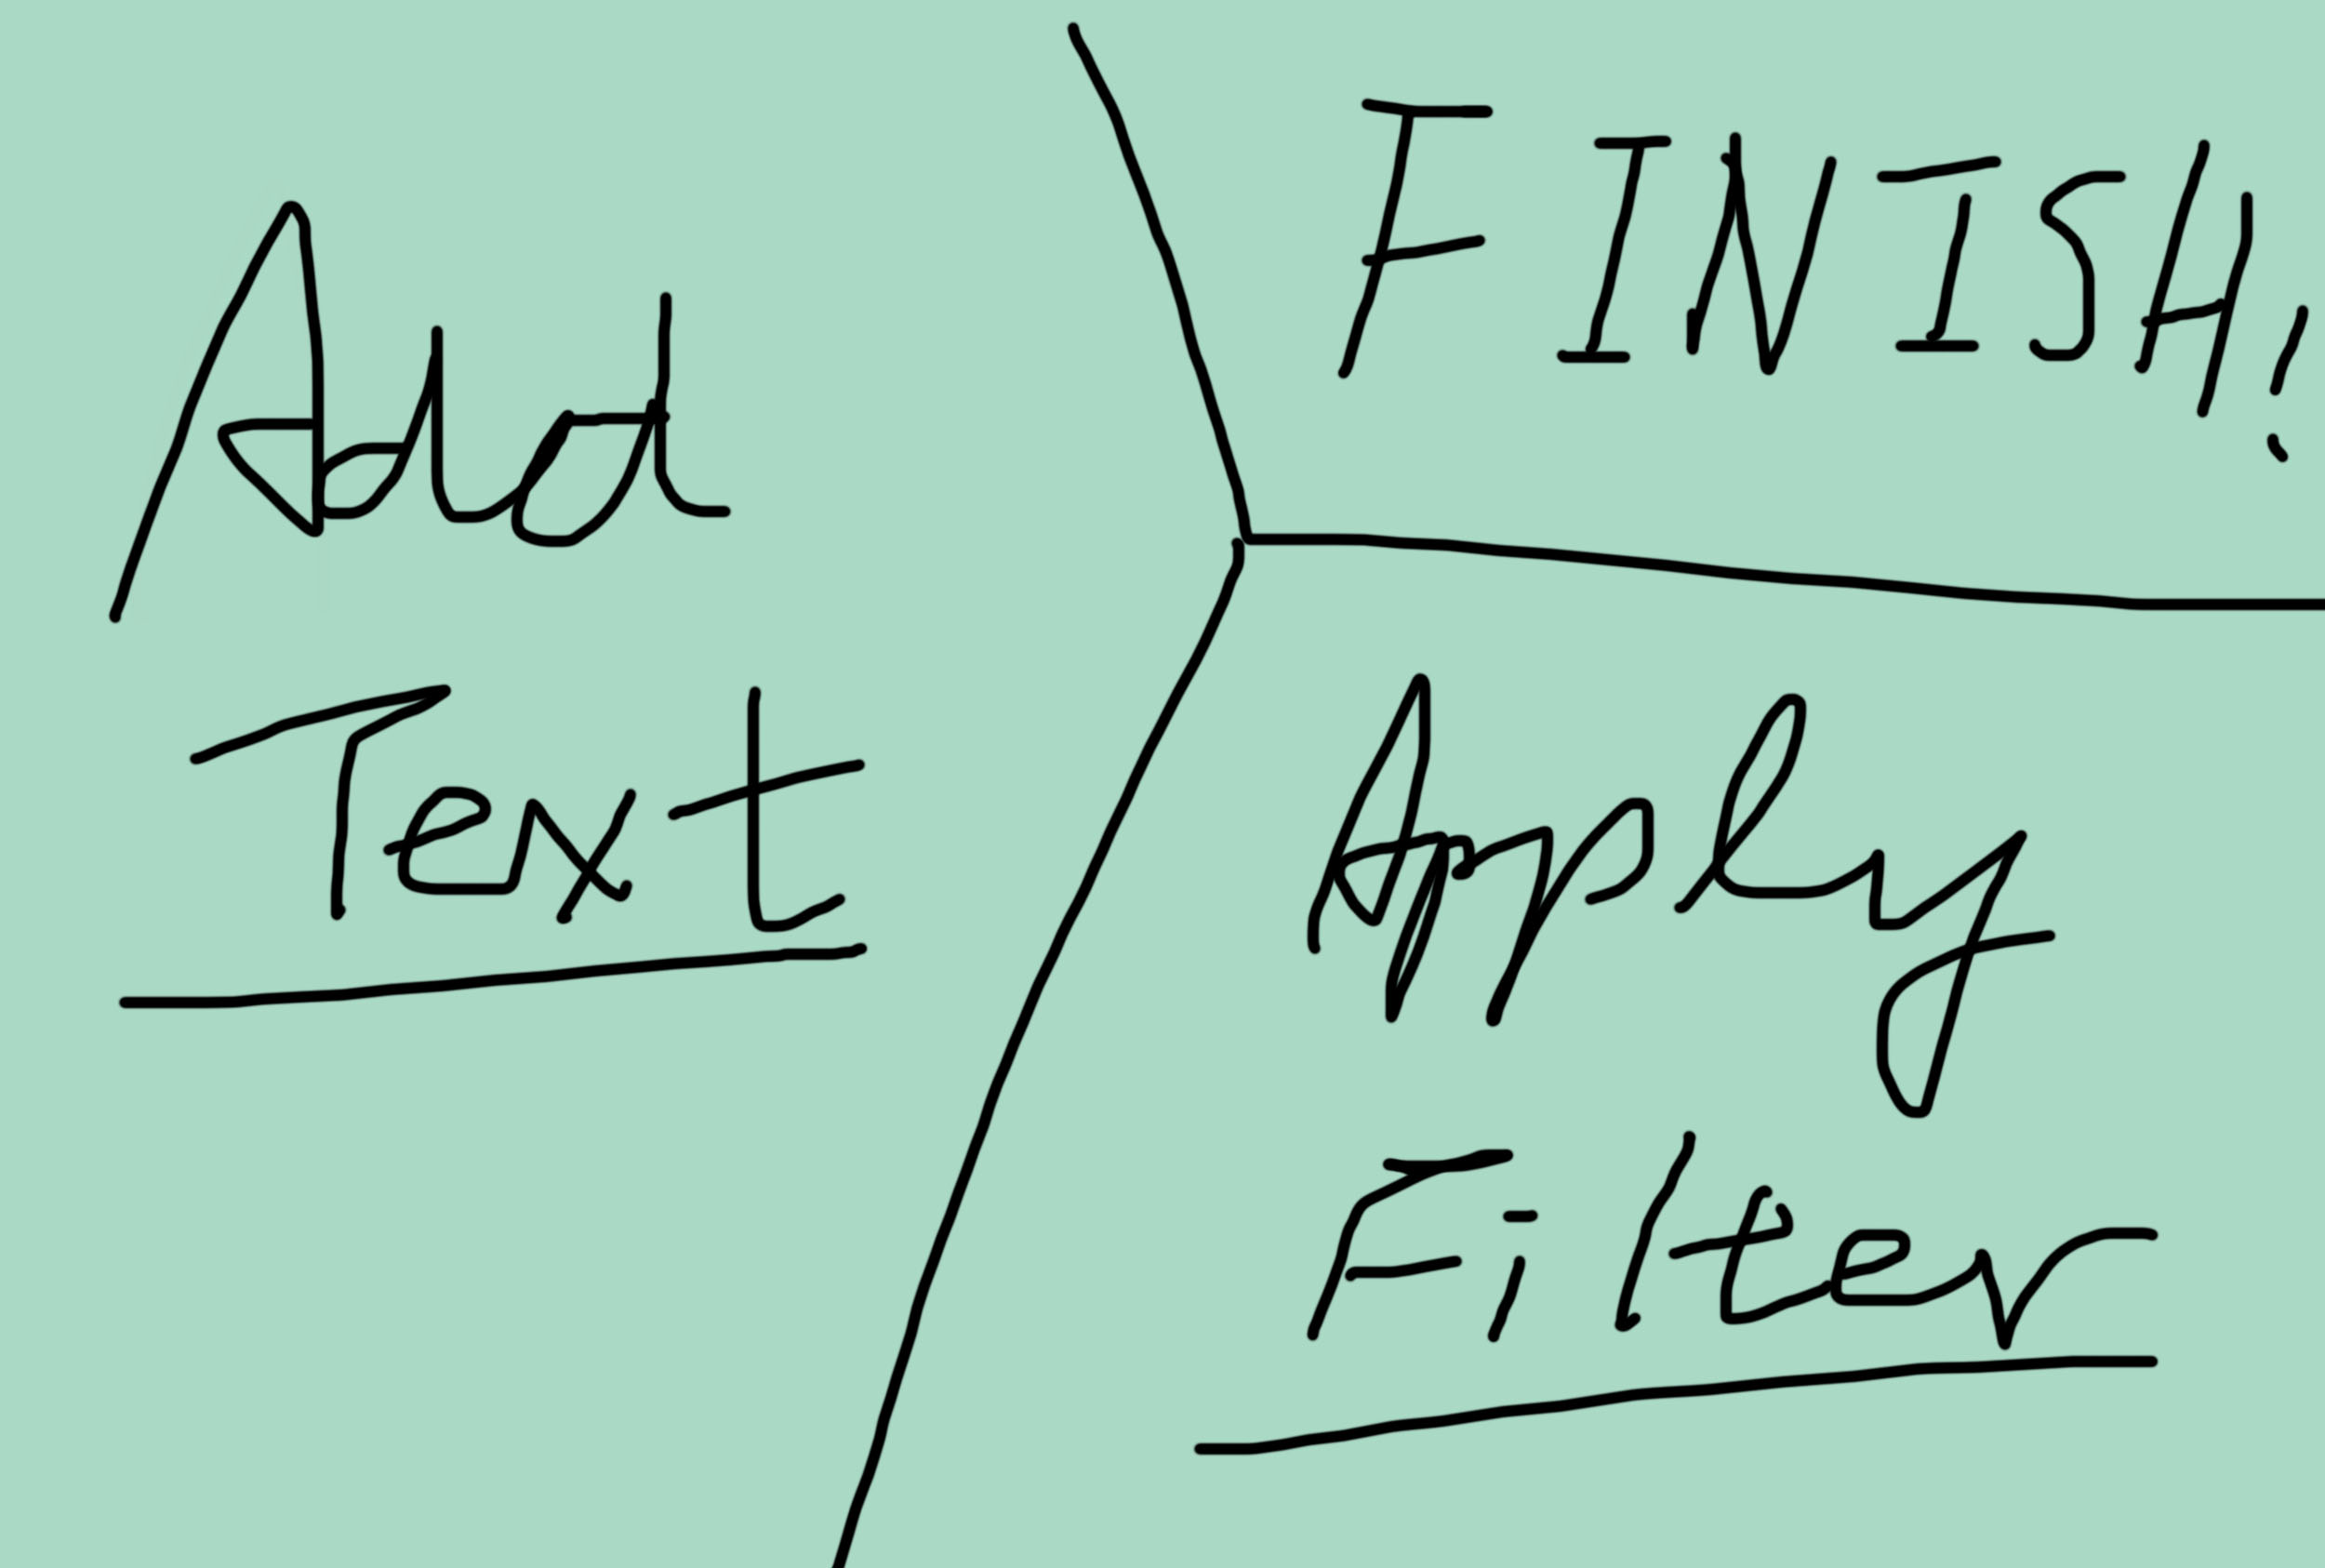 Add
Text
FINISH!
Apply
Filter